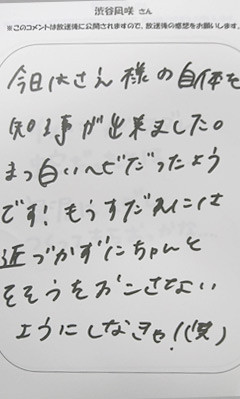 渋谷凪咲 さん
※このコメントは放送後に公開されますので、放送後の感想をお願いします。
今日はさん様の自体を
知る事が出来ました。
まっ白いへびだったよう
です!もうすだれには
近づかずにちゃんと
そそうをおこさない
ようにしなきゃ!(笑)